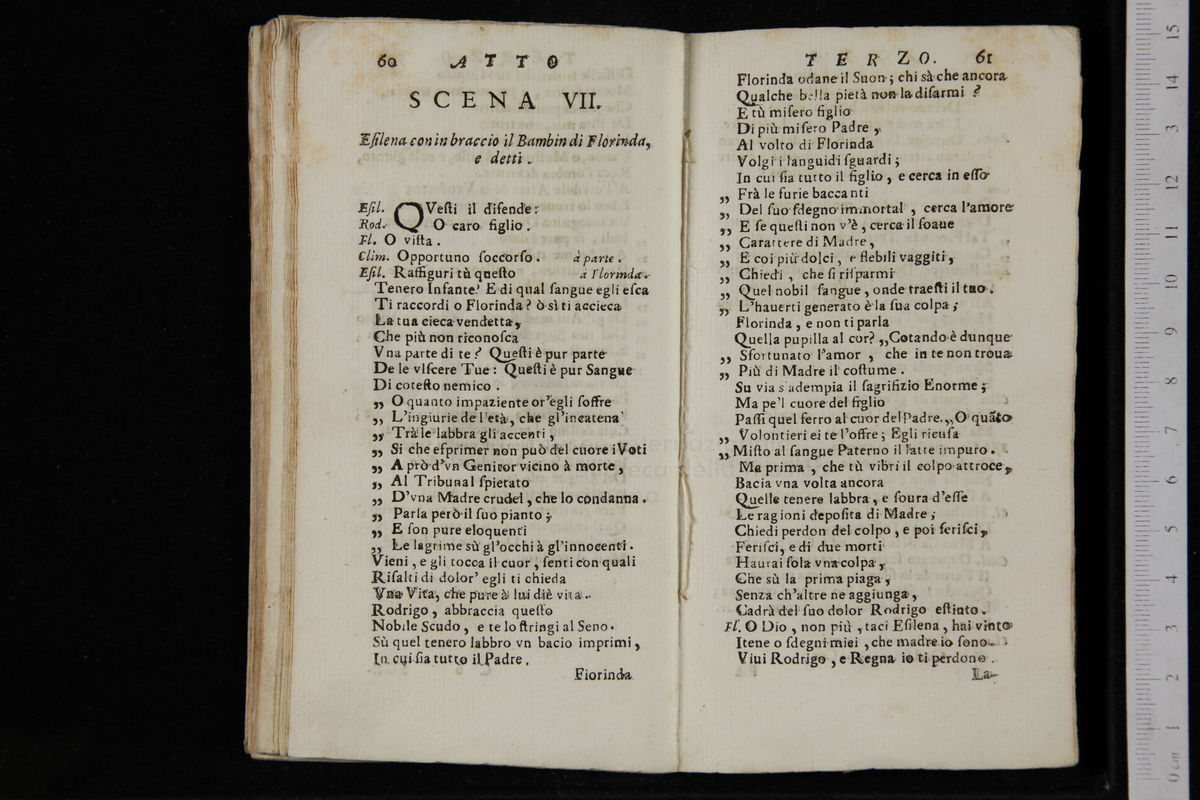 60 ATTO
SCENA VII.
Eſilena con in braccio il Bambin di Florinda,
e detti.
Eſil. QVeſti il difende:
Rod. O caro figlio.
Fl. O viſta.
Clim. Opportuno ſoccorſo. à parte.
Eſil. Raffiguri tù queſto à Florinda.
Tenero Infante? E di qual ſangue egli eſca
Ti raccordi o Florinda? ò sì ti accieca
La tua cieca vendetta,
Che più non riconoſca
Vna parte di te? Queſti è pur parte
De le vIſcere Tue: Queſti è pur Sangue
Di coteſto nemico.
„ O quanto impaziente or'egli ſoffre
„ L'ingiurie de l'età, che gl'incatena
„ Trà le labbra gli accenti,
„ Si che eſprimer non può del cuore i Voti
„ A prò d'vn Genitor vicino à morte,
„ Al Tribunal ſpietato
„ D'vna Madre crudel, che lo condanna.
„ Parla però il ſuo pianto;
„ E ſon pure eloquenti
„ Le lagrime sù gl'occhi à gl'innocenti.
Vieni, e gli tocca il cuor, ſenti con quali
Riſalti di dolor' egli ti chieda
Vna Vita, che pure à lui diè vita.
Rodrigo, abbraccia queſto
Nobile Scudo, e te lo ſtringi al Seno.
Sù quel tenero labbro vn bacio imprimi,
In cui ſia tutto il Padre.
Fiorinda
TERZO. 61
Florinda odane il Suon; chi sà che ancora
Qualche bella pietà non la diſarmi?
E tù miſero figlio
Di più miſero Padre,
Al volto di Florinda
Volgi i languidi ſguardi;
In cui ſia tutto il figlio, e cerca in eſſo
„ Frà le furie baccanti
„ Del ſuo ſdegno immortal, cerca l'amore
„ E ſe queſti non v'è, cerca il ſoaue
„ Carattere di Madre,
„ E coi più dolci, e flebili vaggiti,
„ Chiedi, che ſi riſparmi
„ Quel nobil ſangue, onde traeſti il tuo.
„ L'hauerti generato è la ſua colpa;
Florinda, e non ti parla
Quella pupilla al cor? „Cotando è dunque
„ Sfortunato l'amor, che in te non troua
„ Più di Madre il coſtume.
Su via s'adempia il ſagrifizio Enorme;
Ma pe'l cuore del figlio
Paſſi quel ferro al cuor del Padre. „O quãto
„ Volontieri ei te l'offre; Egli ricuſa
„ Miſto al ſangue Paterno il latte impuro.
Ma prima, che tù vibri il colpo attroce,
Bacia vna volta ancora
Quelle tenere labbra, e ſoura d'eſſe
Le ragioni depoſita di Madre;
Chiedi perdon del colpo, e poi feriſci,
Feriſci, e di due morti
Haurai ſola vna colpa,
Che sù la prima piaga,
Senza ch'altre ne aggiunga,
Cadrà del ſuo dolor Rodrigo eſtinto.
Fl. O Dio, non più, taci Eſilena, hai vinto
Itene o ſdegni miei, che madre io ſono.
Viui Rodrigo, e Regna io ti perdono.
La